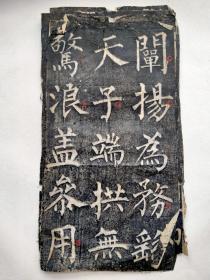 闡揚為務彩
天子端拱無
驚浪盖衆用